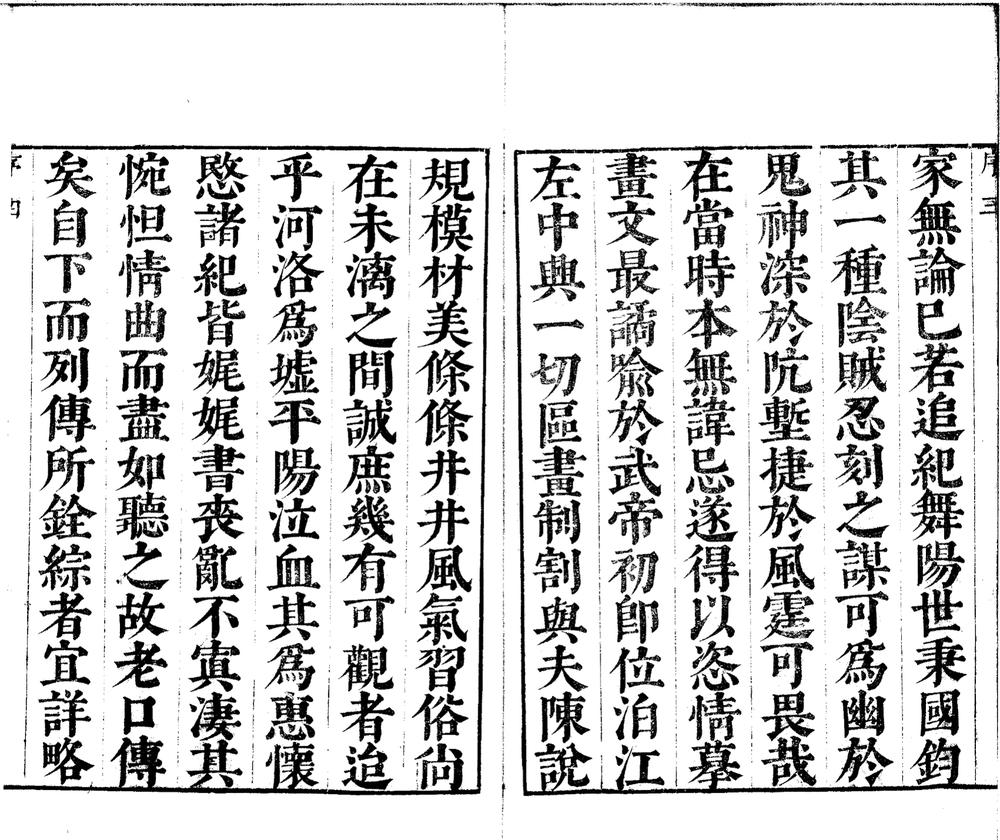 家無論已若追紀舞陽世秉國鈞
其一種陰賊忍刻之謀可為幽於
鬼神深於阬塹捷於風霆可畏哉
在當時本無諱忌遂得以恣情摹
畫文最譎喻於武帝初卽位泊江
左中興一切區畫制割與夫陳說
規模材美條條井井風氣習俗尙
在未漓之間誠庶幾有可觀者迨
乎河洛爲墟平陽泣血其爲惠懷
愍諸紀皆娓娓書喪亂不寘淒其
惋怛情曲而盡如聽之故老口傳
矣自下而列傳所銓綜者宜詳略
序 四